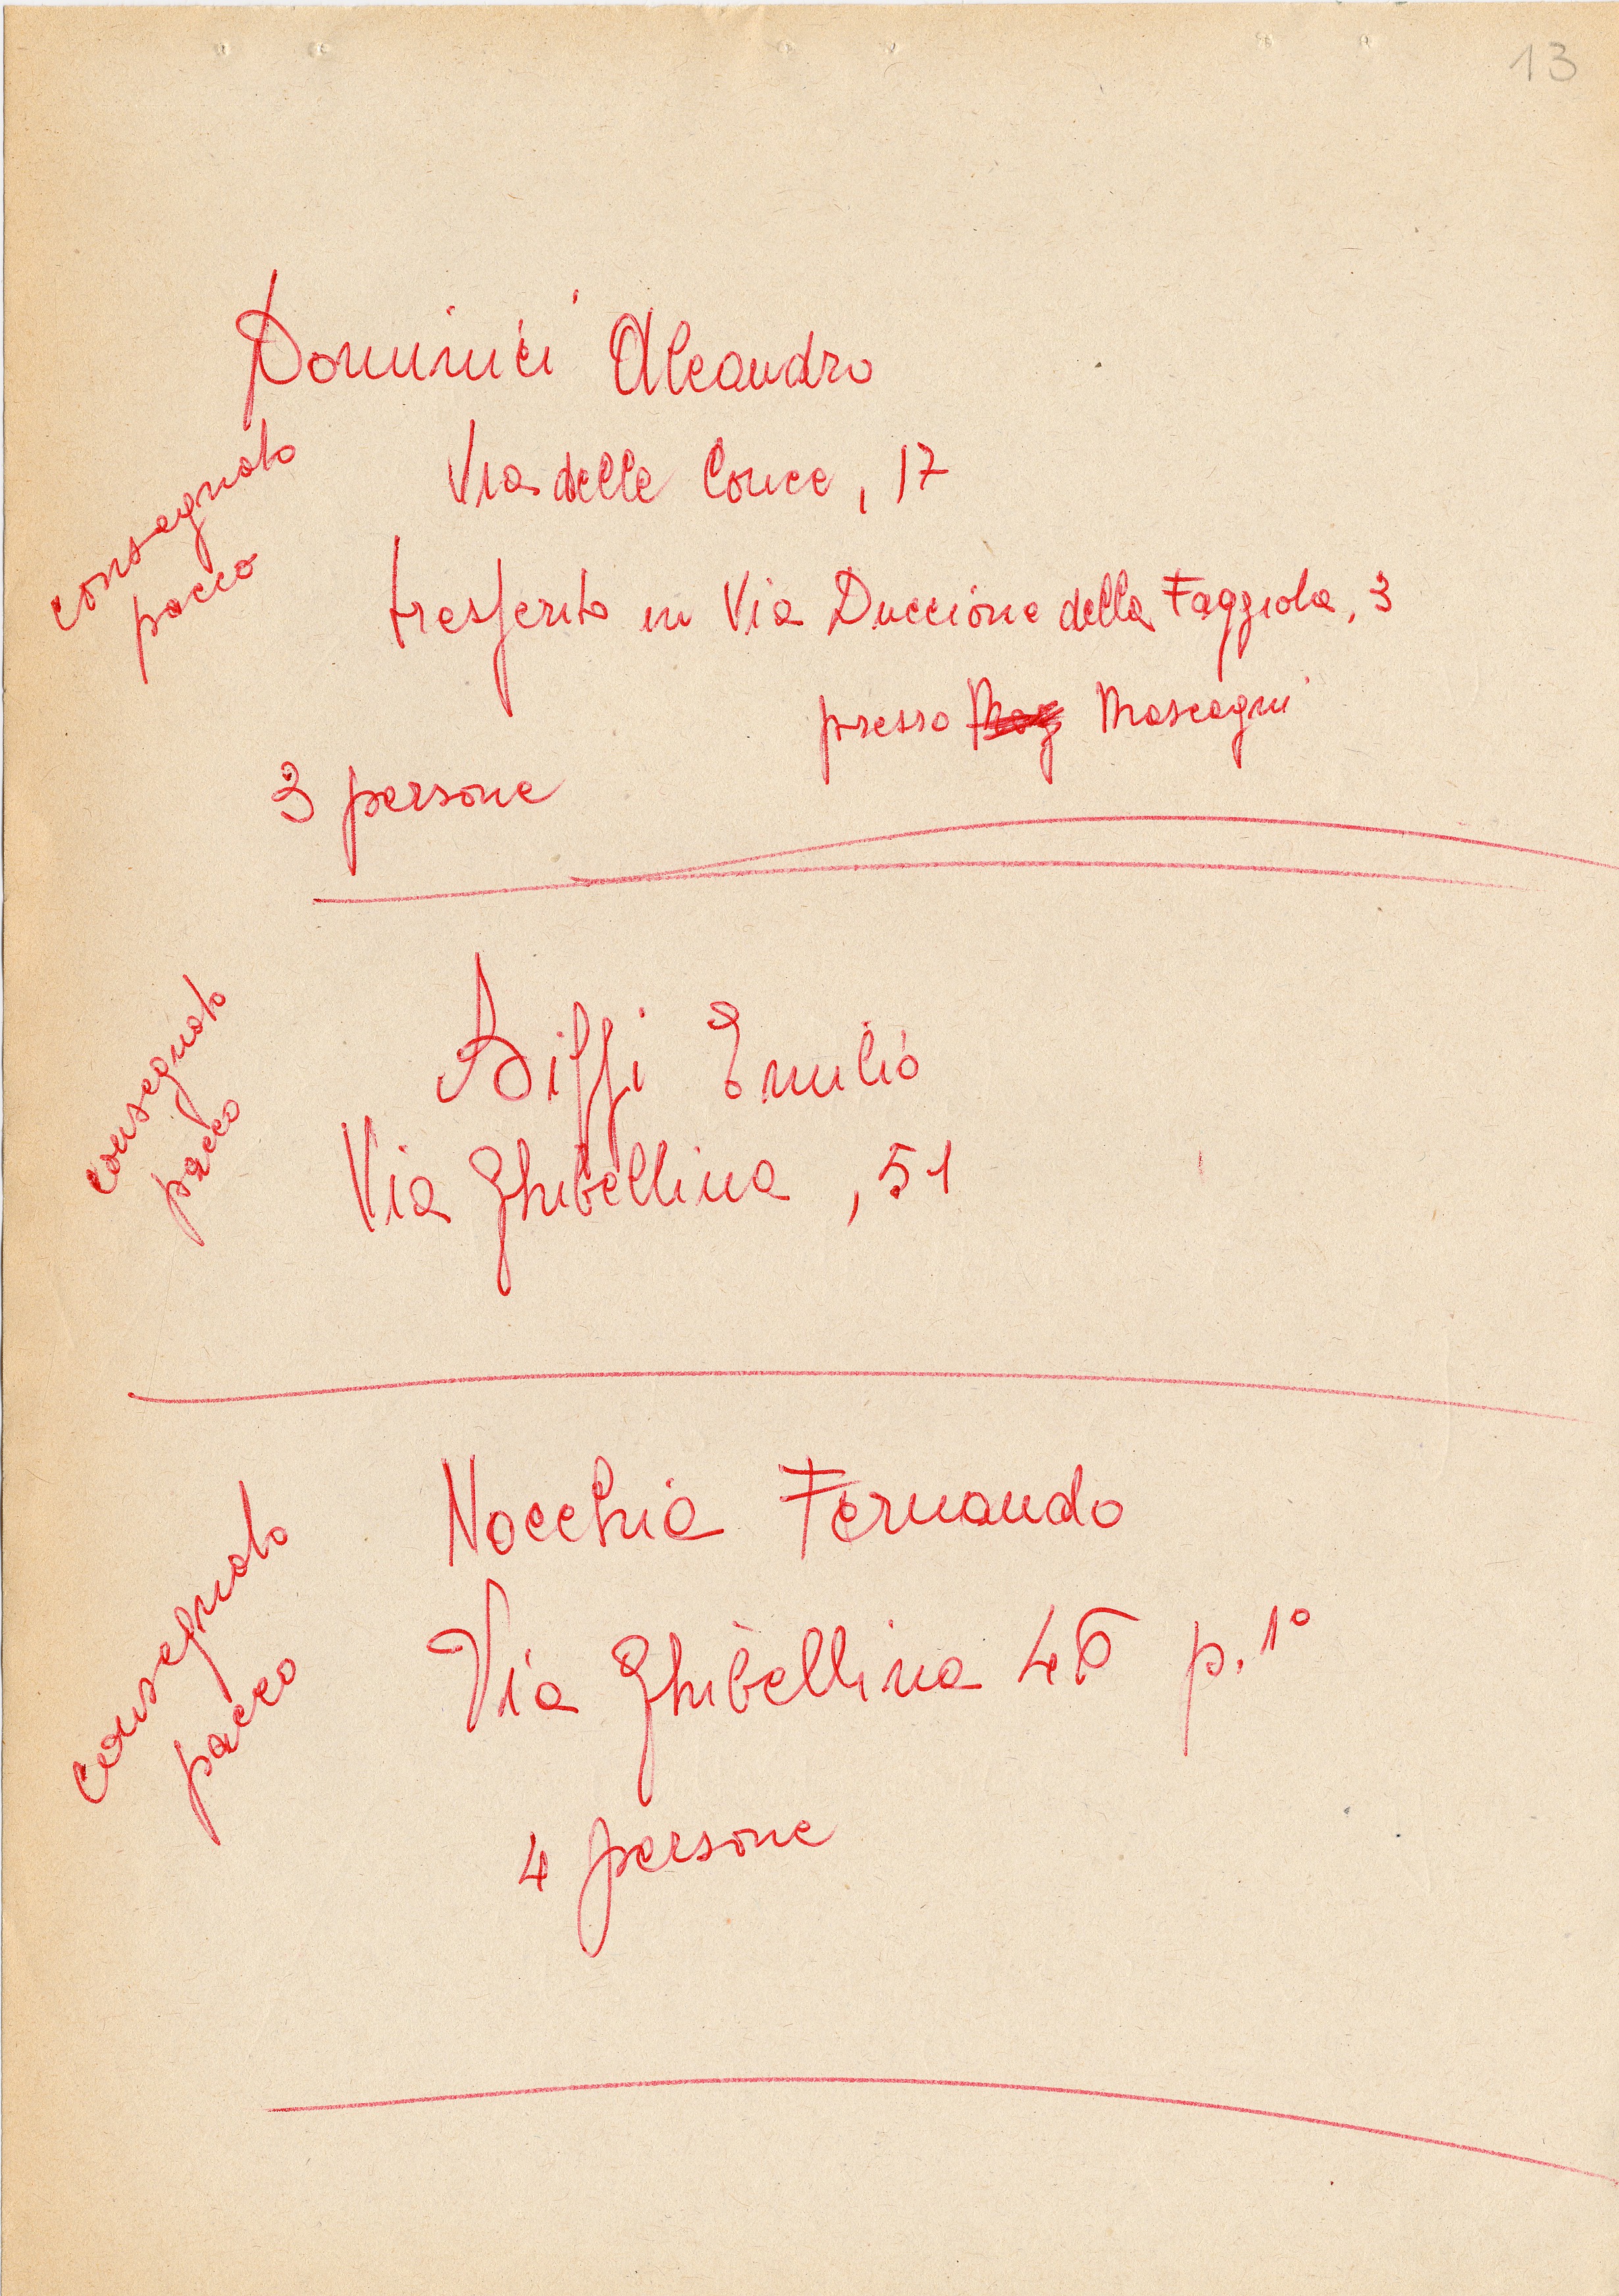 13
Dominici Aleandro
Via delle Conce, 17
consegnato
pacco
trasferito in Via Duccione della Faggiola, 3
presso Mascagni
3 persone
consegnato
pacco
Biffi Emilio
Via Ghibellina, 51
consegnato
pacco
Nocchia Fernando
Via Ghibellina p. 1°
4 persone